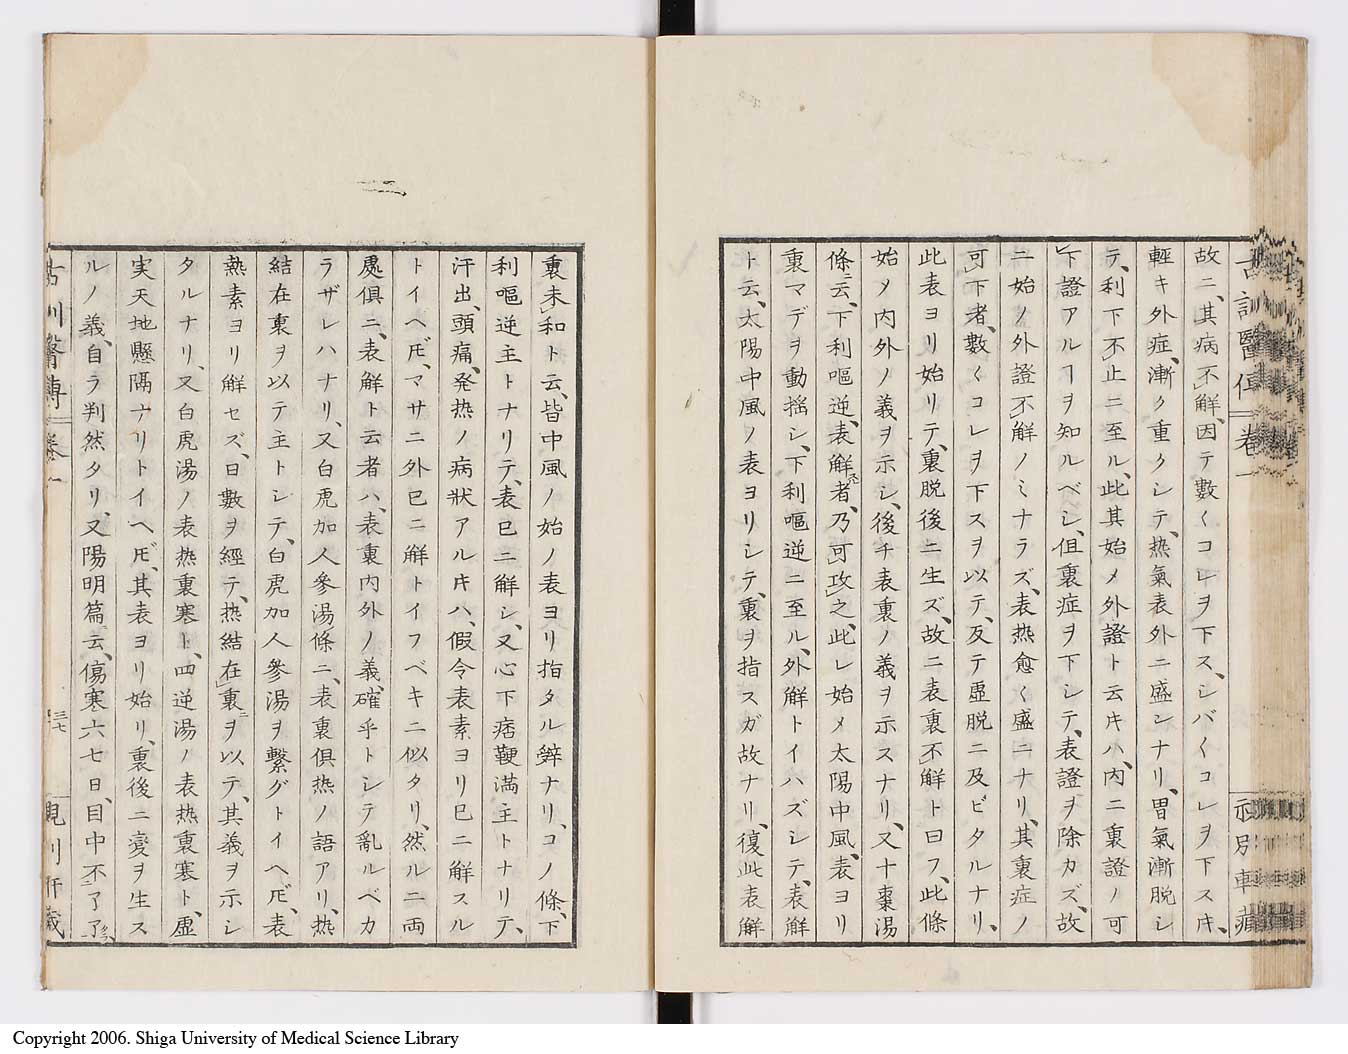 故ニ、其病不解、因テ數〱コレヲ下ス、シバ〱コレヲ下ス𪜈、
輕キ外症、漸ク重クシテ、熱氣表外ニ盛ンナリ、胃氣漸脱シ
テ、利下不止ニ至ル、此其始メ外證ト云𪜈ハ、内ニ裏證ノ可
下證アルヿヲ知ルベシ、但裏症ヲ下シテ、表證ヲ除カズ、故
ニ始ノ外證不解ノミナラズ、表热愈〱盛ニナリ、其裏症ノ
可下者、數〱コレヲ下スヲ以テ、反テ虚脱ニ及ビタルナリ、
此表ヨリ始リテ、裏脱後ニ生ズ、故ニ表裏不解ト曰フ、此條
始メ内外ノ義ヲ示シ、後チ表裏ノ義ヲ示スナリ、又十棗湯
條ニ云、下利嘔逆、表解者、乃可攻之、此レ始メ太陽中風、表ヨリ
裏マデヲ動揺シ、下利嘔逆ニ至ル、外解トイハズシテ、表解
ト云、太陽中風ノ表ヨリシテ、裏ヲ指スガ故ナリ、復此表解
古訓醫傳 卷一
裏未和ト云、皆中風ノ始ノ表ヨリ指タル辭ナリ、コノ條、下
利嘔逆主トナリテ、表已ニ解シ、又心下痞鞕満主トナリテ、
汗出、頭痛、発热ノ病狀アル𪜈ハ、假令表素ヨリ已ニ解スル
トイヘ𪜈、マサニ外已ニ解トイフベキニ似タリ、然ルニ両
處俱ニ、表解ト云者ハ、表裏内外ノ義、確乎トシテ亂ルベカ
ラザレハナリ、又白虎加人參湯條ニ、表裏俱热ノ語アリ、热
結在裏ヲ以テ主トシテ、白虎加人參湯ヲ繫グトイヘ𪜈、表
熱素ヨリ解セズ、日數ヲ經テ、热結在裏ヲ以テ、其義ヲ示シ
タルナリ、又白虎湯ノ表热裏寒ト、四逆湯ノ表热裏寒ト、虚
実天地懸隔ナリトイヘ𪜈、其表ヨリ始リ、裏後ニ變ヲ生ス
ルノ義、自ラ判然タリ、又陽明篇ニ云、傷寒六七日、目中不了了、
古訓醫傳 卷一 三七
Copyright 2006. Shiga University of Medical Science Library